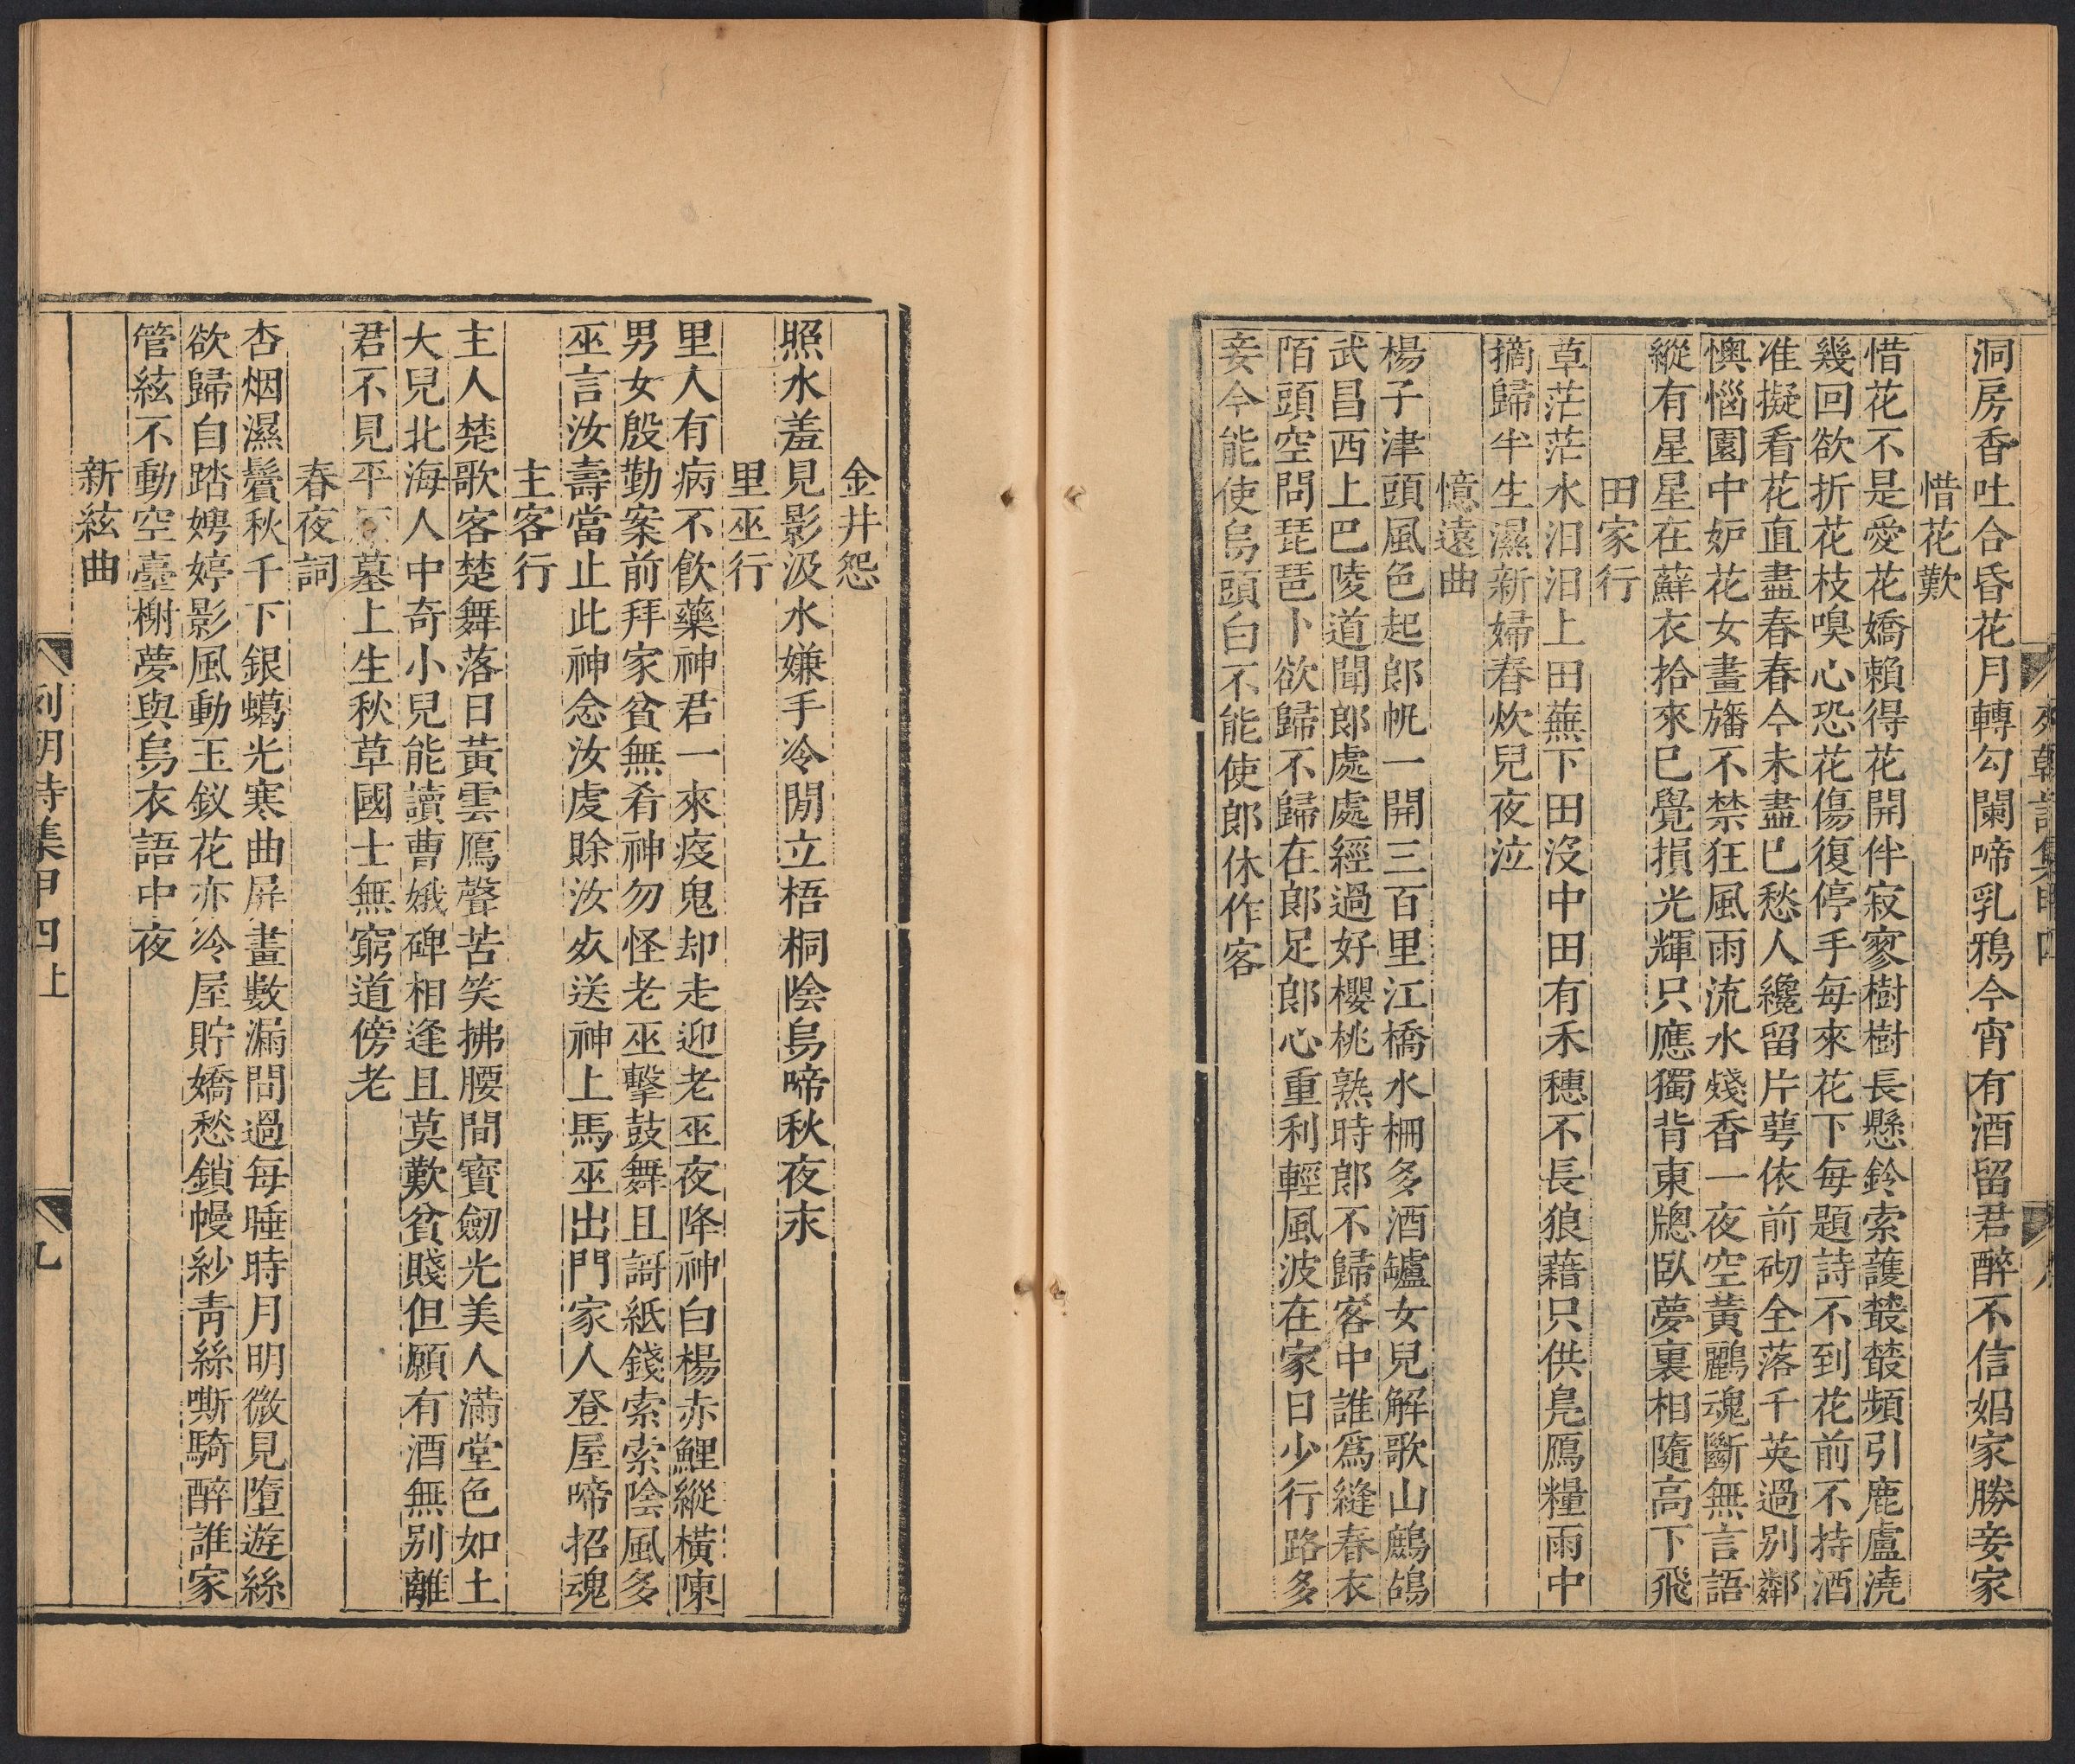 洞房香吐合昏花月轉勾闌啼乳鴉今宵有酒留君醉不信娼家勝妾家
惜花歎
惜花不是愛花嬌賴得花開伴寂寥樹樹長懸鈴索護叢叢頻引鹿盧澆
幾回欲折花枝嗅心恐花傷復停手每來花下每題詩不到花前不持酒
准擬看花直盡春春今未盡已愁人纔留片萼依前砌全落千英過別鄰
懊惱園中妒花女畫旛不禁狂風雨流水殘香一夜空黃鸝魂斷無言語
縱有星星在蘚衣拾來已覺損光輝只應獨背東牕臥夢裏相隨高下飛
田家行
草茫茫水汩汩上田蕪下田沒中田有禾穗不長狼藉只供鳧鴈糧雨中
摘歸半生濕新婦春炊兒夜泣
憶遠曲
楊子津頭風色起郎帆一開三百里江橋水柵多酒罏女兒解歌山鷓鴣
武昌西上巴陵道聞郎處處經過好櫻桃熟時郎不歸客中誰爲縫春衣
陌頭空問琵琶卜欲歸不歸在郎足郎心重利輕風波在家日少行路多
妾今能使烏頭白不能使郎休作客
金井怨
照水羞見影汲水嫌手冷閒立梧桐陰烏啼秋夜永
里巫行
里人有病不飲藥神君一來疫鬼却走迎老巫夜降神白楊赤鯉縱橫陳
男女殷勤案前拜家貧無肴神勿怪老巫擊鼓舞且謌紙錢索索陰風多
巫言汝壽當止此神念汝虔賖汝死送神上馬巫出門家人登屋啼招魂
主客行
主人楚歌客楚舞落日黃雲鴈聲苦笑拂腰間寶劒光美人滿堂色如土
大兒北海人中奇小兒能讀曹娥碑相逢且莫歎貧賤但願有酒無別離
君不見平墓上生秋草國士無窮道傍老
春夜詞
杏烟濕鬢秋千下銀蠟光寒曲屏畫數漏問過每睡時月明微見墮遊絲
欲歸自踏娉婷影風動玉釵花亦冷屋貯嬌愁鎖幔紗靑絲嘶騎醉誰家
管絃不動空臺榭夢與烏衣語中夜
新絃曲
列朝詩集甲四上
九